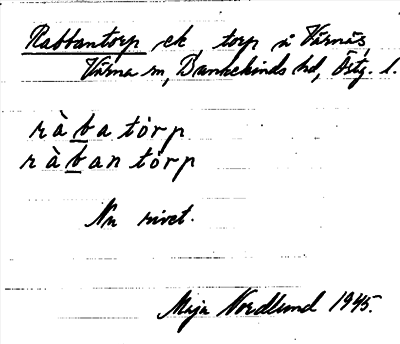 Rabbantorp ek, torp å Värnäs,
Värna sn, Bankekinds hd, Östg. l.
ràbatórp
ràbantórp
Nu rivet.
Maja Nordlund 1945.